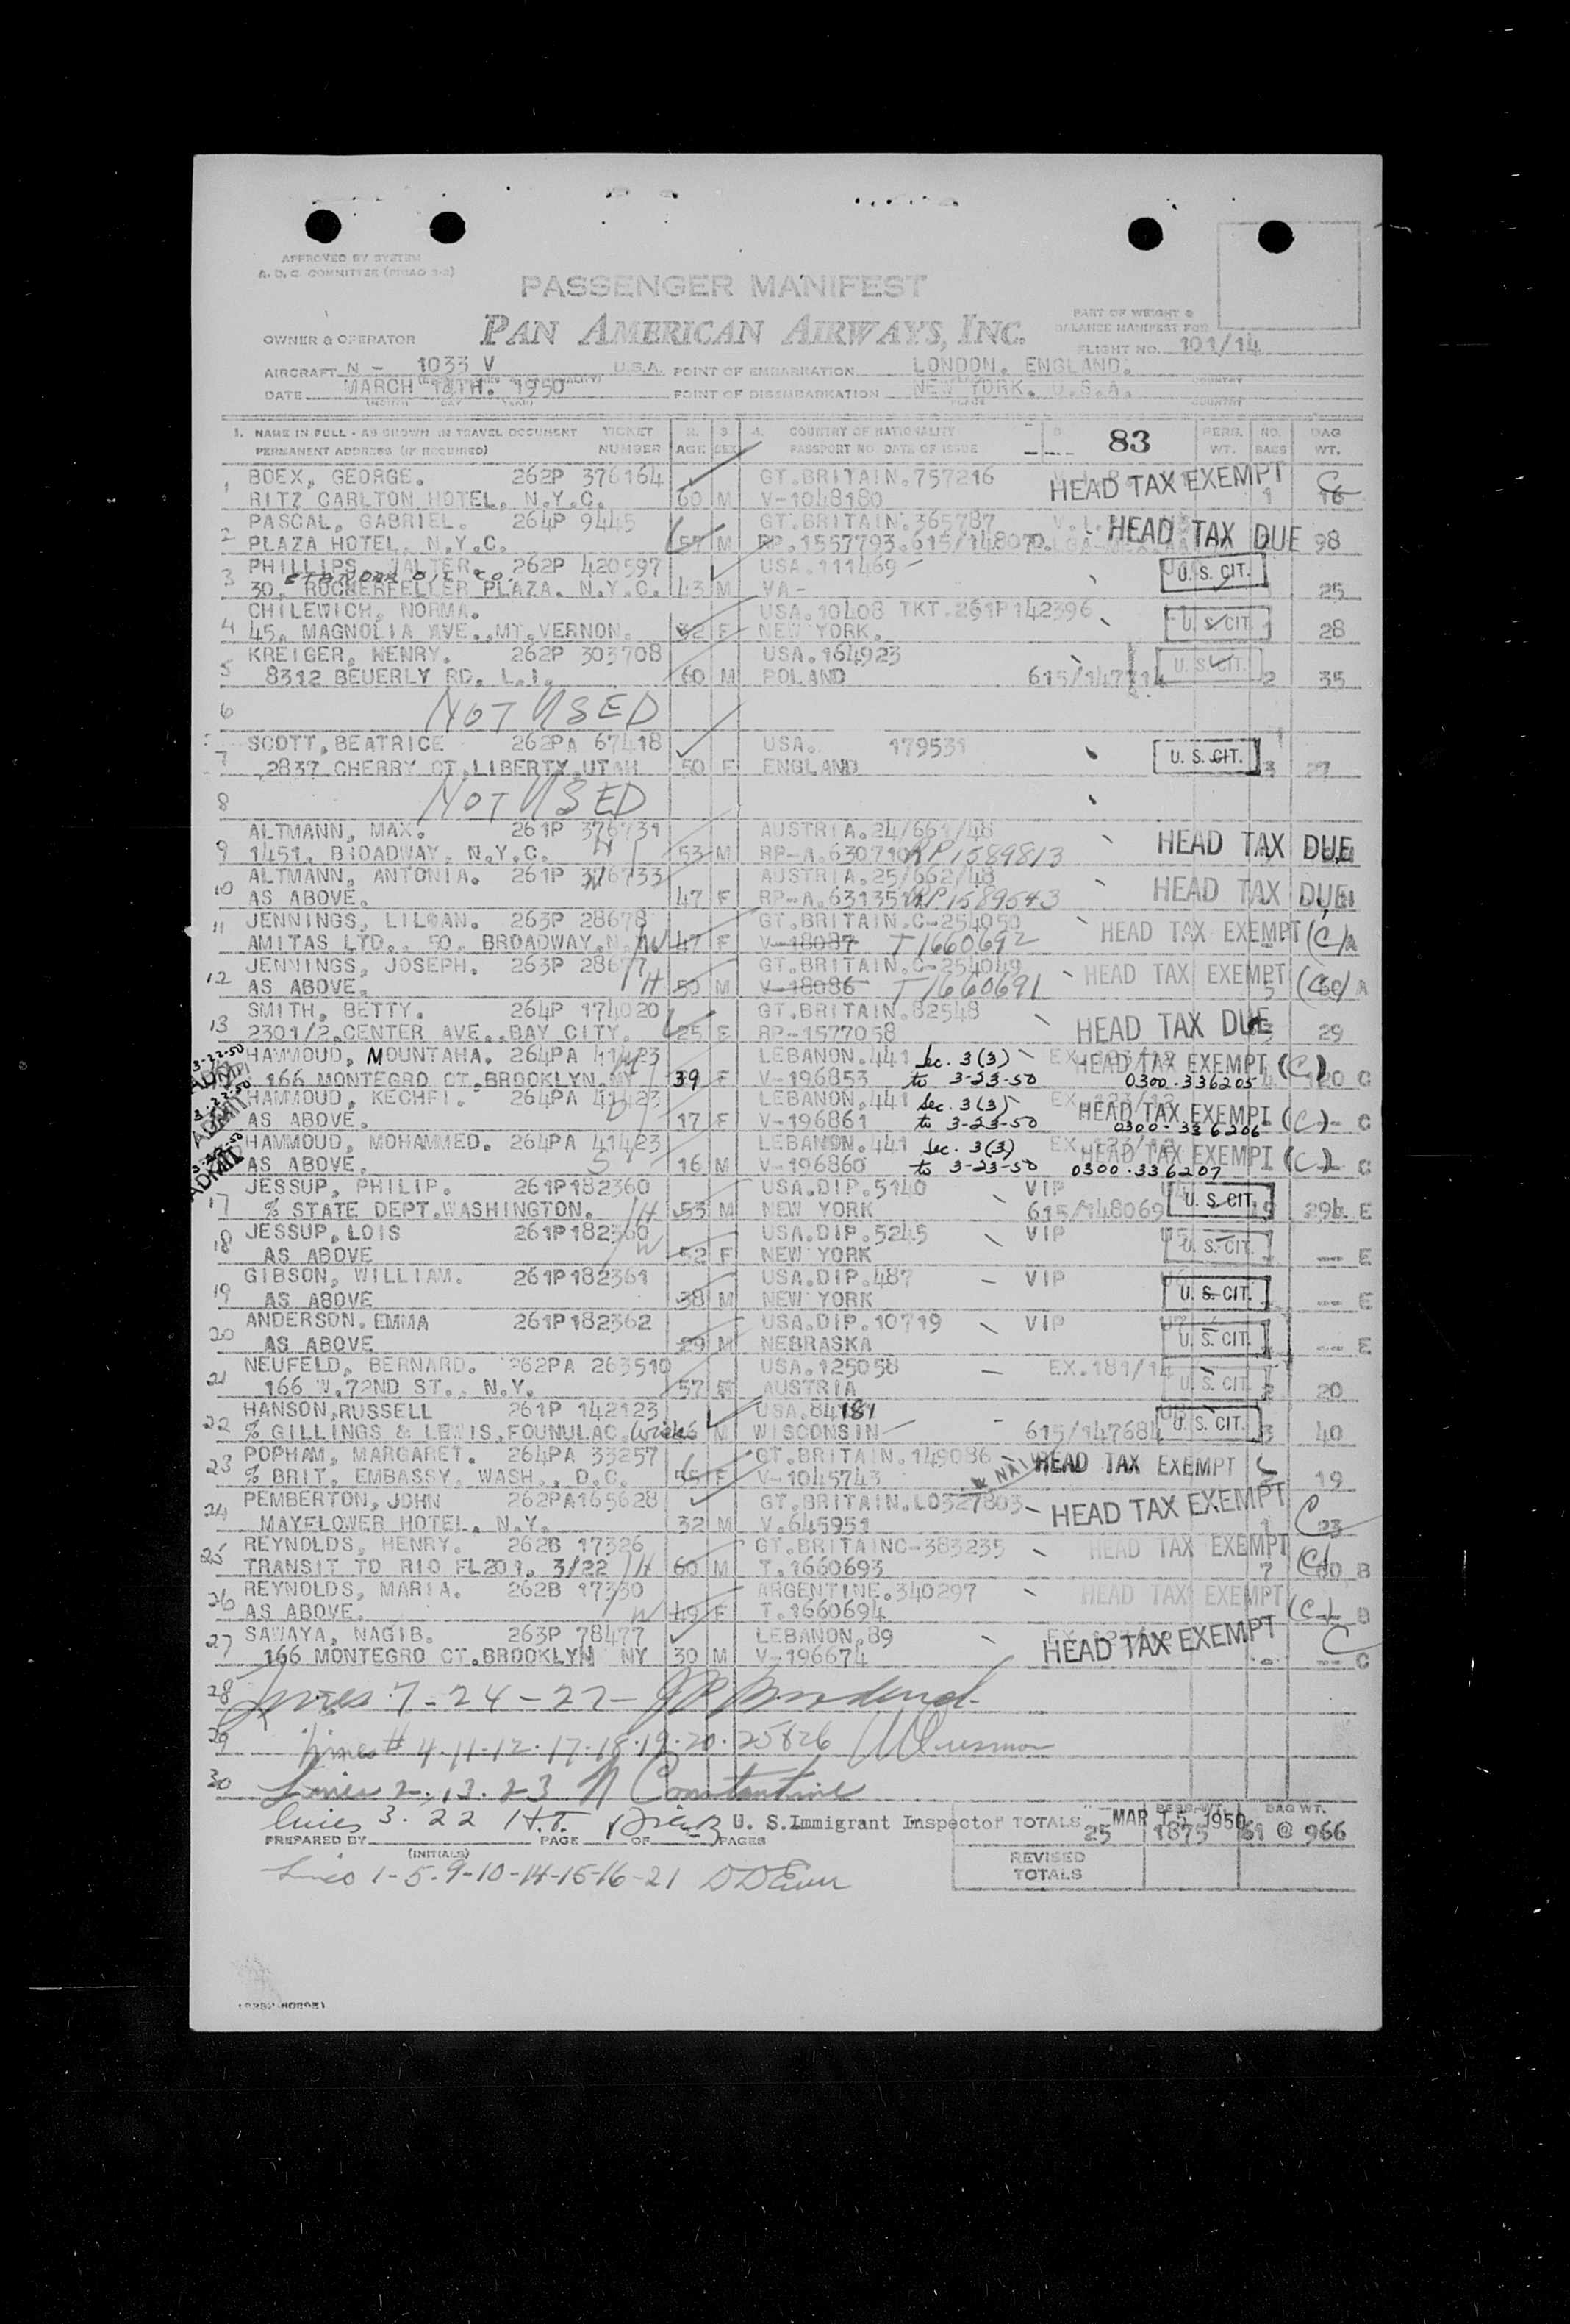 APPROVED BY SYSTEM
A. D. C. COMMITTEE
PASSENGER MANIFEST
PAN AMERICAN AIRWAYS, INC.
PART OF WEIGHT &
BALANCE MANIFEST FOR
OWNER & OPERATOR
FLIGHT NO. 101/14
AIRCRAFT N - 1033 V U.S.A. POINT OF EMBARKATION LONDON, ENGLAND.
DATE MARCH 14TH. 1950 POINT OF DISEMBARKATION NEW YORK. U.S.A.
1. NAME IN FULL - AS SHOWN IN TRAVEL DOCUMENT TICKET 2. 3 4. COUNTRY OF NATIONALITY 83 PERS. NO. BAG
PERMANENT ADDRESS (IF REQUIRED) NUMBER AGE SEX PASSPORT NO. DATE OF ISSUE WT. BAGS WT.
1 BOEX, GEORGE. 262P 376164 GT.BRITAIN.757216 HEAD TAX EXEMPT C
RITZ CARLTON HOTEL, N.Y.C. 60 M V-1048180 1 16
2 PASCAL, GABRIEL. 264P 9445 GT.BRITAIN.365787 HEAD TAX DUE
PLAZA HOTEL. N.Y.C. 57 M RP.1557793.615/148070. 98
3 PHILLIPS, WALTER. 262P 420597 USA.111469 U. S. CIT.
30. ROCKERFELLER PLAZA. N.Y.C. 43 M VA- 25
4 CHILEWICH, NORMA. USA.10408 TKT.261P142396
45. MAGNOLIA AVE..MT.VERNON. 32 F NEW YORK. U. S. CIT. 28
5 KREIGER, HENRY. 262P 303708 USA.164923 U. S. CIT.
8312 BEUERLY RD. L.I. 60 M POLAND 615/147714 2 35
6 NOT USED
7 SCOTT,BEATRICE 262PA 67418 USA. 179531
2837 CHERRY CT.LIBERTY,UTAH 50 F ENGLAND U. S. CIT. 3 27
8 NOT USED
9 ALTMANN, MAX. 261P 376731 AUSTRIA.24/661/48 HEAD TAX DUE
1451. BROADWAY. N.Y.C. H 53 M RP-A.630710 RP1589813
10 ALTMANN, ANTONIA. 261P 376733 AUSTRIA.25/662/48 HEAD TAX DUE
AS ABOVE. W 47 F RP-A.631351 RP1589543
11 JENNINGS, LILWAN. 263P 28678 GT.BRITAIN.C-254050 HEAD TAX EXEMPT (C)
AMITAS LTD.. 50. BROADWAY.N. W 47 F V-18087 T1660692
12 JENNINGS, JOSEPH. 263P 28677 GT.BRITAIN.C-254049 HEAD TAX EXEMPT (C)
AS ABOVE. H 50 M V-18086 T1660691 A
13 SMITH, BETTY. 264P 174020 GT.BRITAIN.82548 HEAD TAX DUE
2301/2.CENTER AVE..BAY CITY. 25 F RP-1577058 29
3-22-50 HAMMOUD, MOUNTAHA. 264PA 41423 LEBANON.441 Sec. 3(3) HEAD TAX EXEMPT (C)
ADMIT 166 MONTEGRO CT.BROOKLYN.NY 39 F V-196853 to 3-23-50 0300.336205 120 C
3-22-50 HAMMOUD, KECHFI. 264PA 41423 LEBANON.441 Sec. 3(3) HEAD TAX EXEMPT (C)
ADMIT AS ABOVE. D 17 F V-196861 to 3-23-50 0300-336206 C
HAMMOUD, MOHAMMED. 264PA 41423 LEBANON.441 Sec. 3(3) HEAD TAX EXEMPT (C)
ADMIT AS ABOVE. S 16 M V-196860 to 3-23-50 0300.336207 C
17 JESSUP, PHILIP. 261P182360 USA.DIP.5140 VIP U. S. CIT.
% STATE DEPT.WASHINGTON. H 53 M NEW YORK 615/148069 294 E
18 JESSUP,LOIS 261P182360 USA.DIP.5245 VIP U. S. CIT.
AS ABOVE W 52 F NEW YORK E
19 GIBSON, WILLIAM. 261P182361 USA.DIP.487 VIP U. S. CIT.
AS ABOVE 38 M NEW YORK E
20 ANDERSON,EMMA 261P182362 USA.DIP.10719 VIP U. S. CIT.
AS ABOVE 29 M NEBRASKA E
21 NEUFELD, BERNARD. 262PA 263510 USA.125058 EX.181/14
166 W.72ND ST.. N.Y. 57 AUSTRIA U. S. CIT. 2 20
22 HANSON,RUSSELL 261P 142123 USA.84181 U. S. CIT.
% GILLINGS & LEWIS,FOUNULAC. M WISCONSIN 615/147684 3 40
23 POPHAM, MARGARET. 264PA 33257 GT.BRITAIN.149086 HEAD TAX EXEMPT C
% BRIT. EMBASSY. WASH., D.C. 55 F V-1045743 19
24 PEMBERTON,JOHN 262PA165628 GT.BRITAIN.LO327803 HEAD TAX EXEMPT C
MAYFLOWER HOTEL, N.Y. 32 M V.645951 1 23
25 REYNOLDS, HENRY. 262B 17326 GT.BRITAINC-383235 HEAD TAX EXEMPT (C)
TRANSIT TO RIO FL201. 3/22 H 60 M T.1660693 7 B
26 REYNOLDS, MARIA. 262B 17330 ARGENTINE.340297 HEAD TAX EXEMPT (C)
AS ABOVE. W 49 F T.1660694 B
27 SAWAYA, NAGIB. 263P 78477 LEBANON.89 HEAD TAX EXEMPT C
166 MONTEGRO CT.BROOKLYN NY 30 M V-196674 C
28 Lines 7-24-27-
29 lines # 4.11.12.17.18.19.20.25&26
30 Lines 2.13.23 N Constantine
lines 3.22 H.T. U. S.Immigrant Inspector TOTALS 25 MAR 15 1950 PERS. WT. 1875 BAG WT. 61 @ 966
PREPARED BY (INITIALS) PAGE OF PAGES
REVISED
TOTALS
Lines 1-5-9-10-14-15-16-21